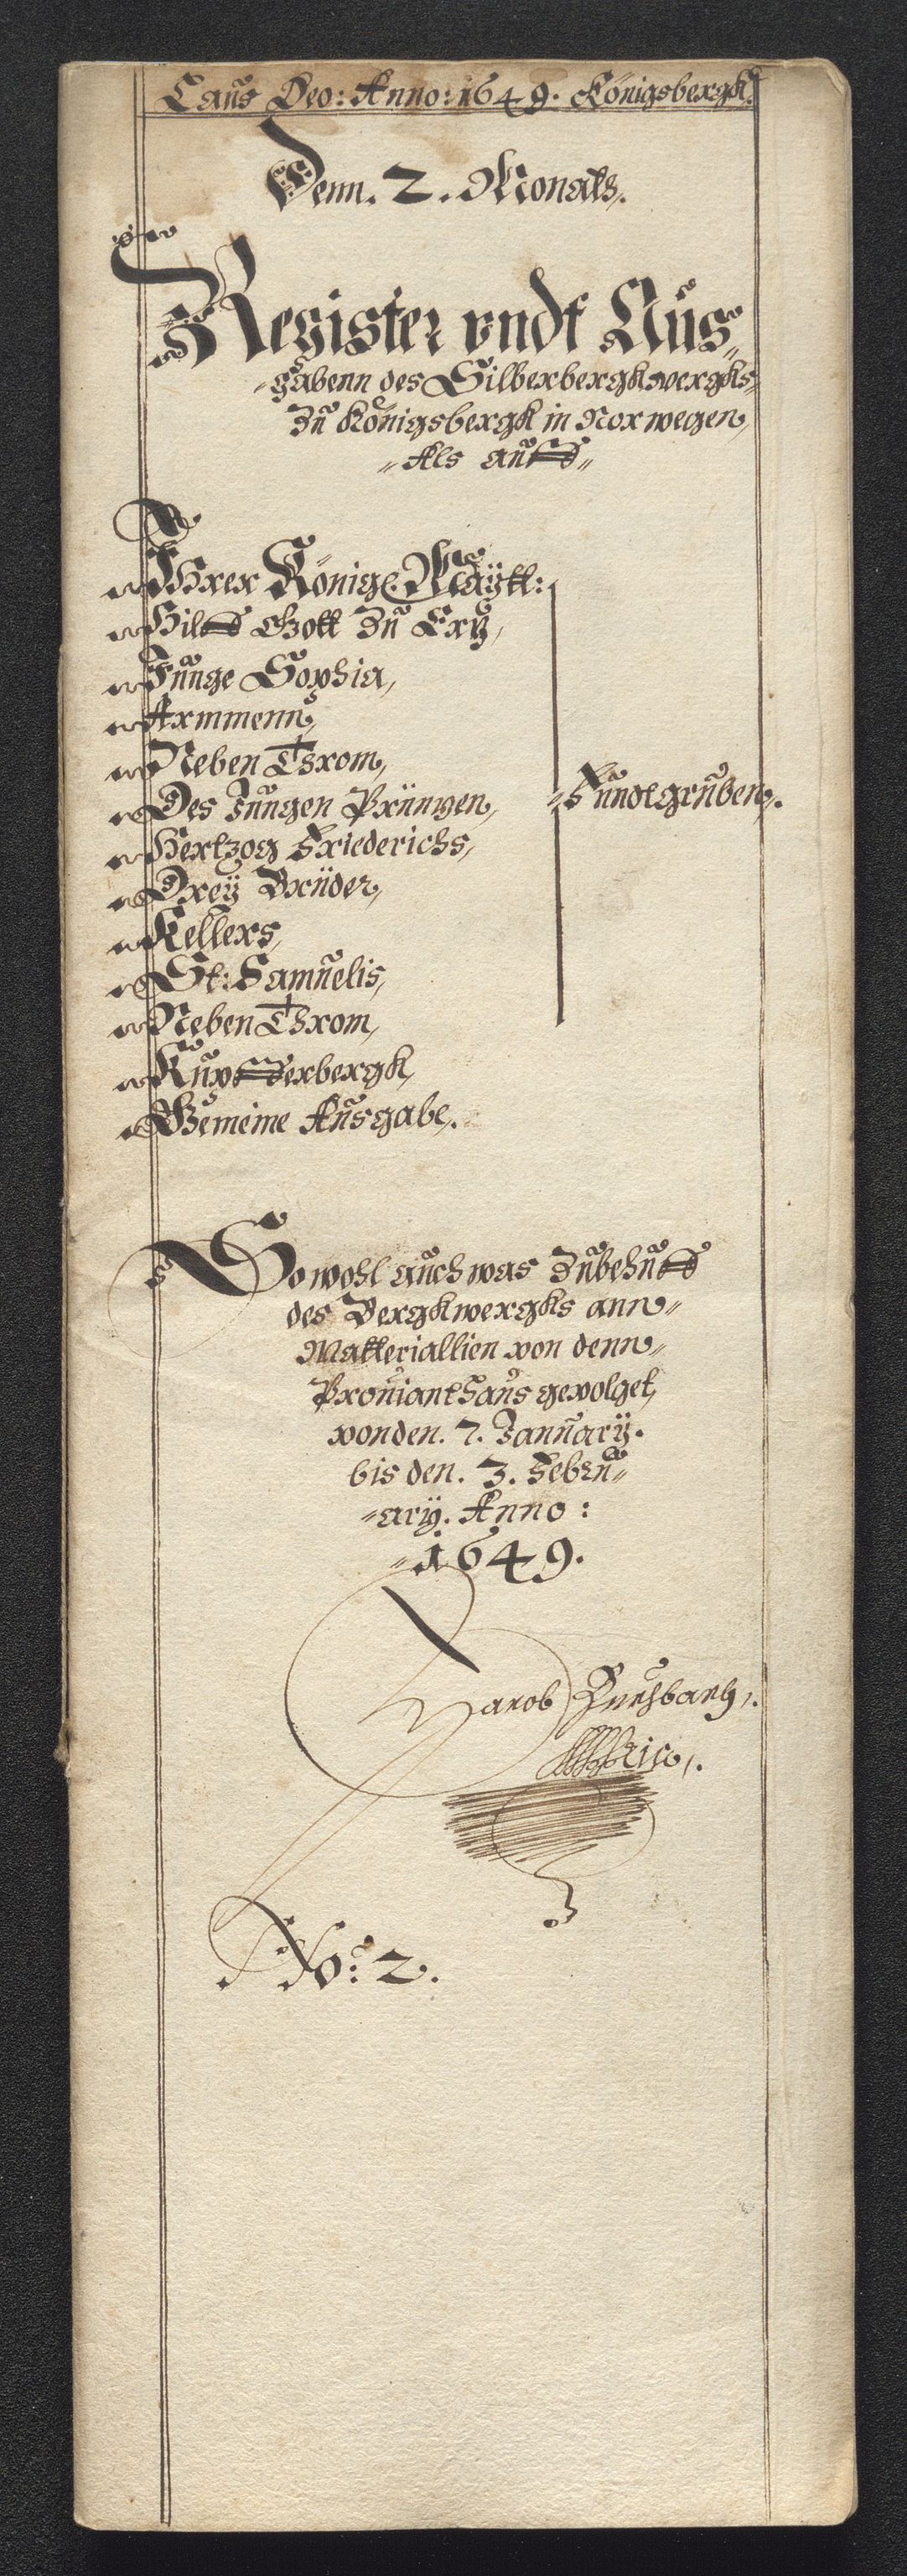 Laus Deo: Anno: 1649. Königsbergk.
Denn. 2. Monats.
Register vndt Aus„
„gabenn des Silberbergkwergks„
Zu Königsbergk in Norwegen,
„Als auff„
Ihrer Königl. Maÿtt:
Hilff Gott Zu Ery,
Junge Sophia,
Armmenn,
Neben Throm,
Des Jungen Printzen,
Hertzog Friederichs,
Dreÿ Brüder,
Kellers,
St: Samuelis,
Neben Throm,
„Fundtgruben.
Kupfferbergk,
Gemeine Ausgabe.
So wohl auch was Zubehuff
des Bergkwergks ann„
Matteriallien von denn„
Prouianthaus gevolget,
von den. 7. January.
bis den. 3. Febru„
„arÿ. Anno:
„1649.
Jacob
No: 2.